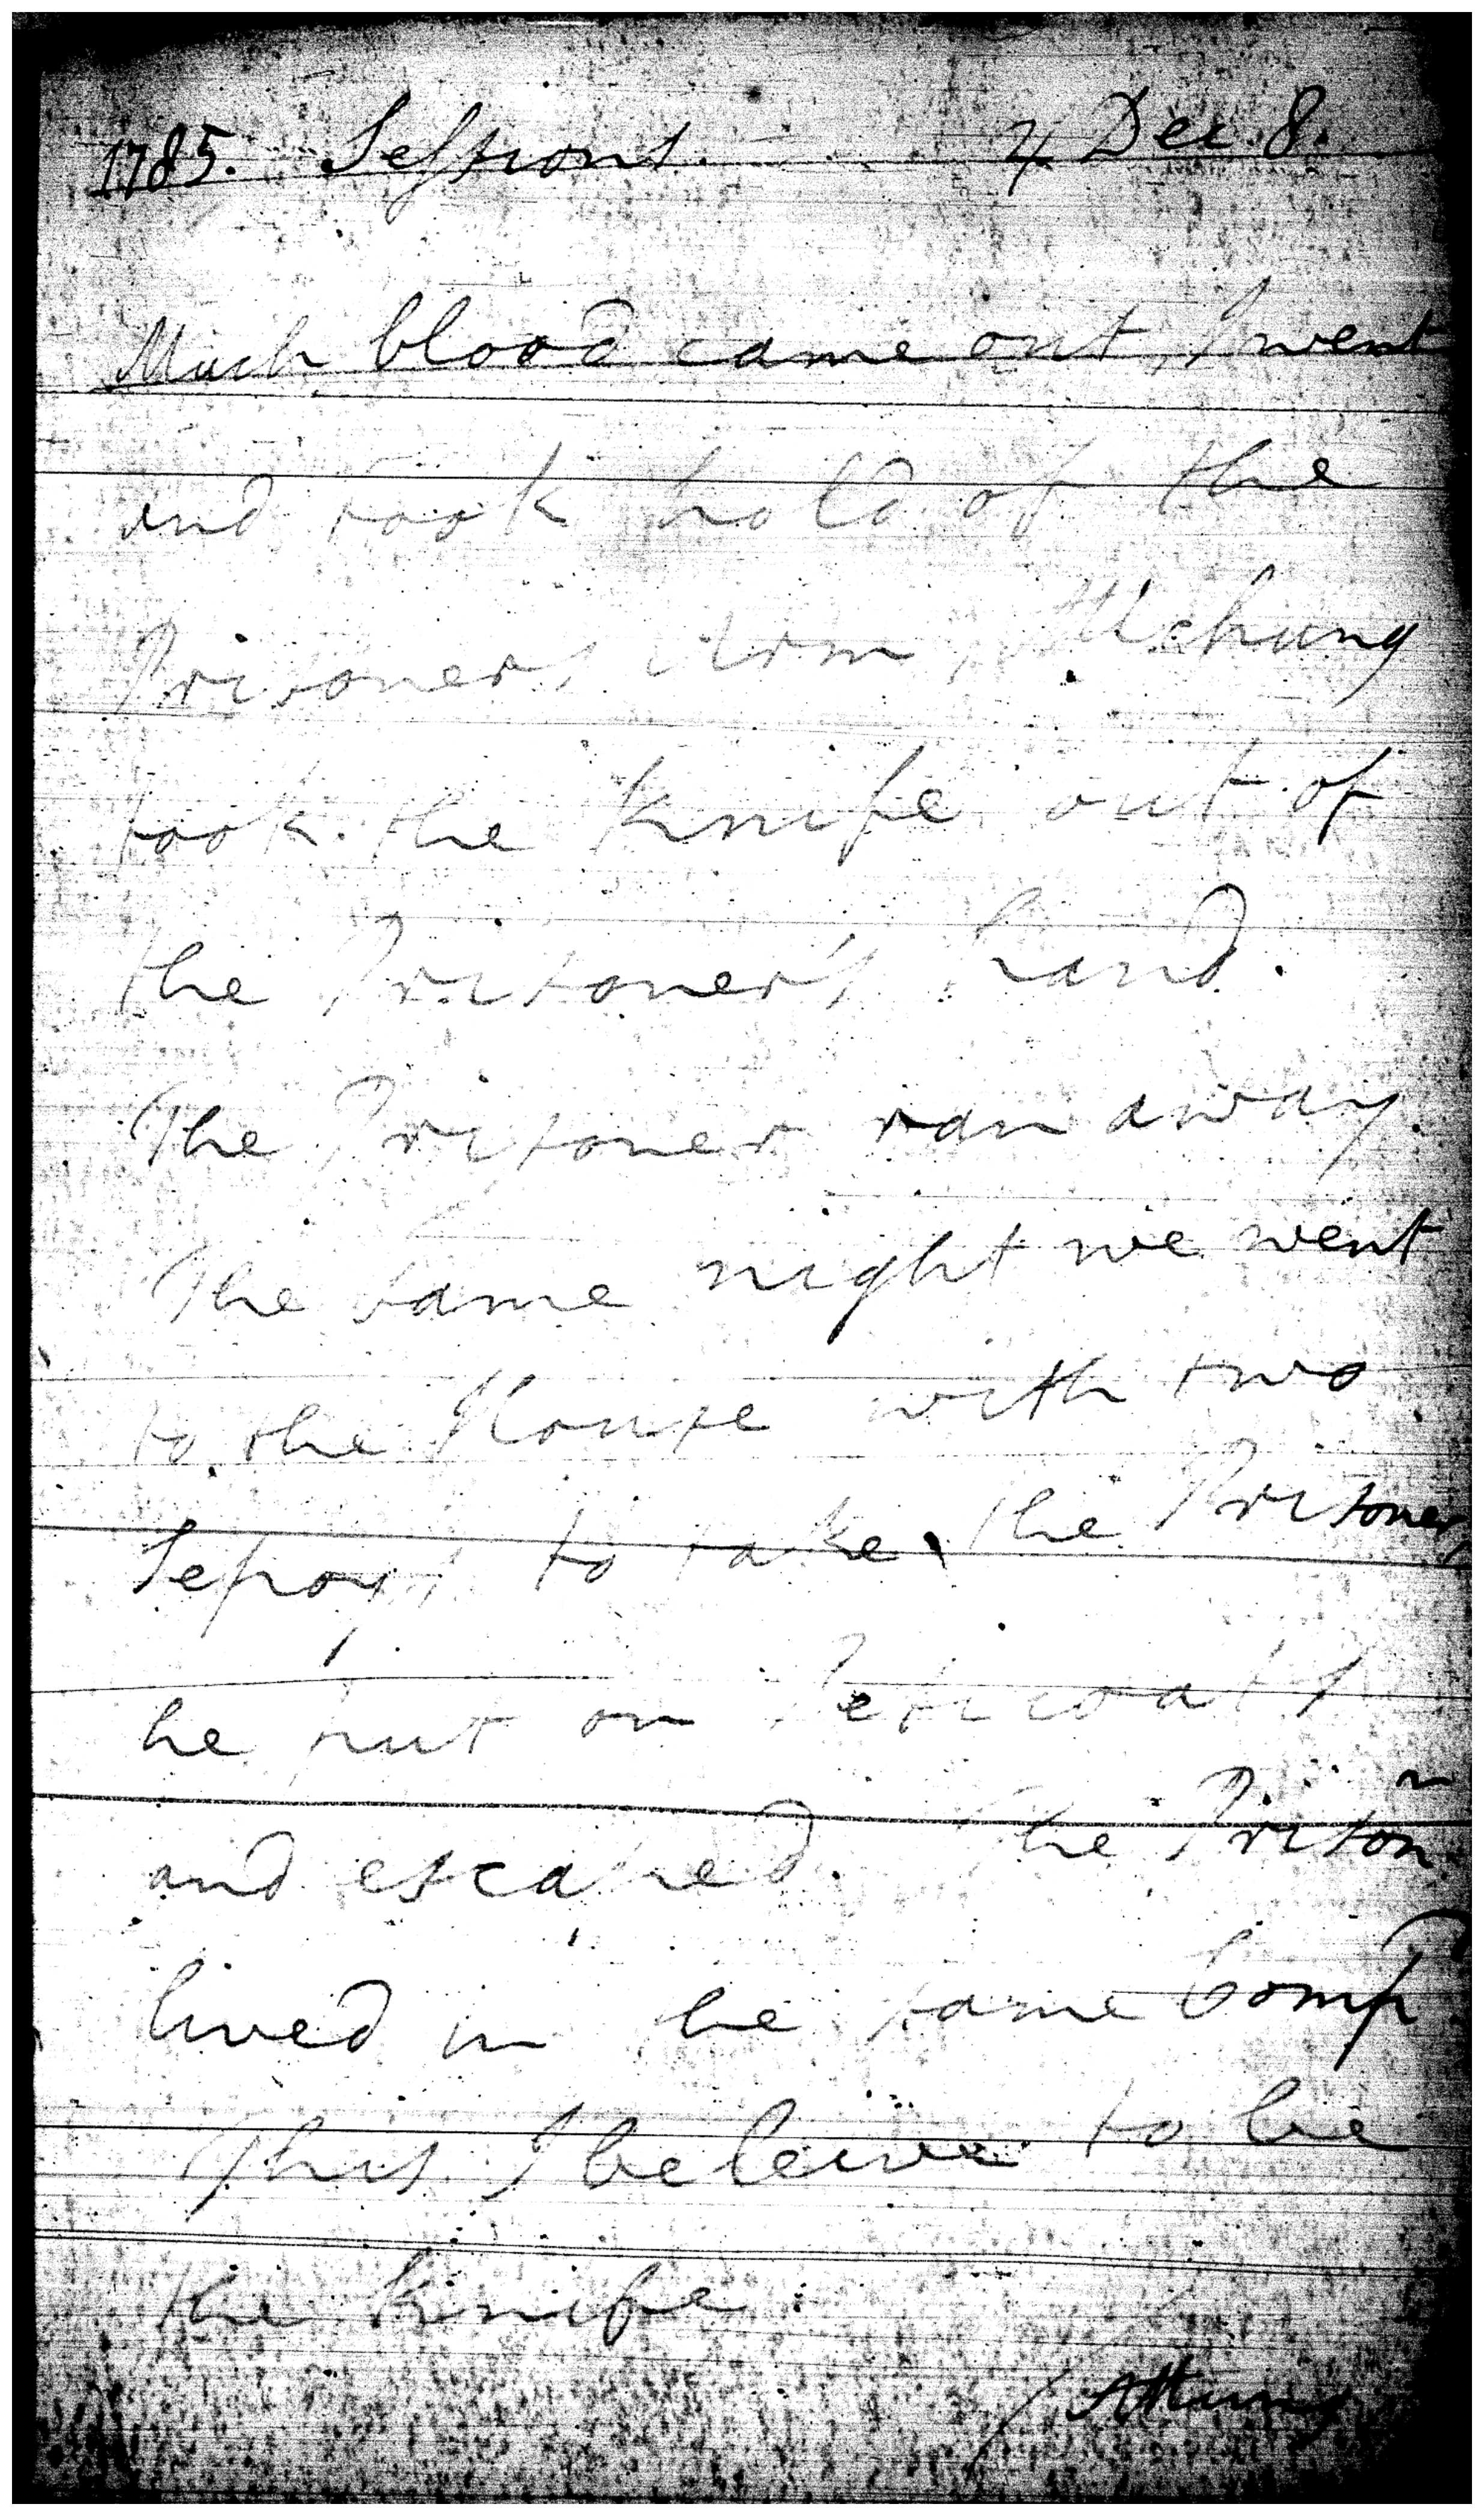 1785. Sessions. 4 Dec. 8.
Much blood came out, I went
and took hold of the
Prisoners Arm, Atchung
took the Knife out of
the Prisoner's hand.
The Prisoner ran away.
The same night we went
to the House with two
Sepoys to take the Prisoner,
he put on Peticoats
and escaped. The Prison
lived in the same Comp
This I beleive to be
the Knife.